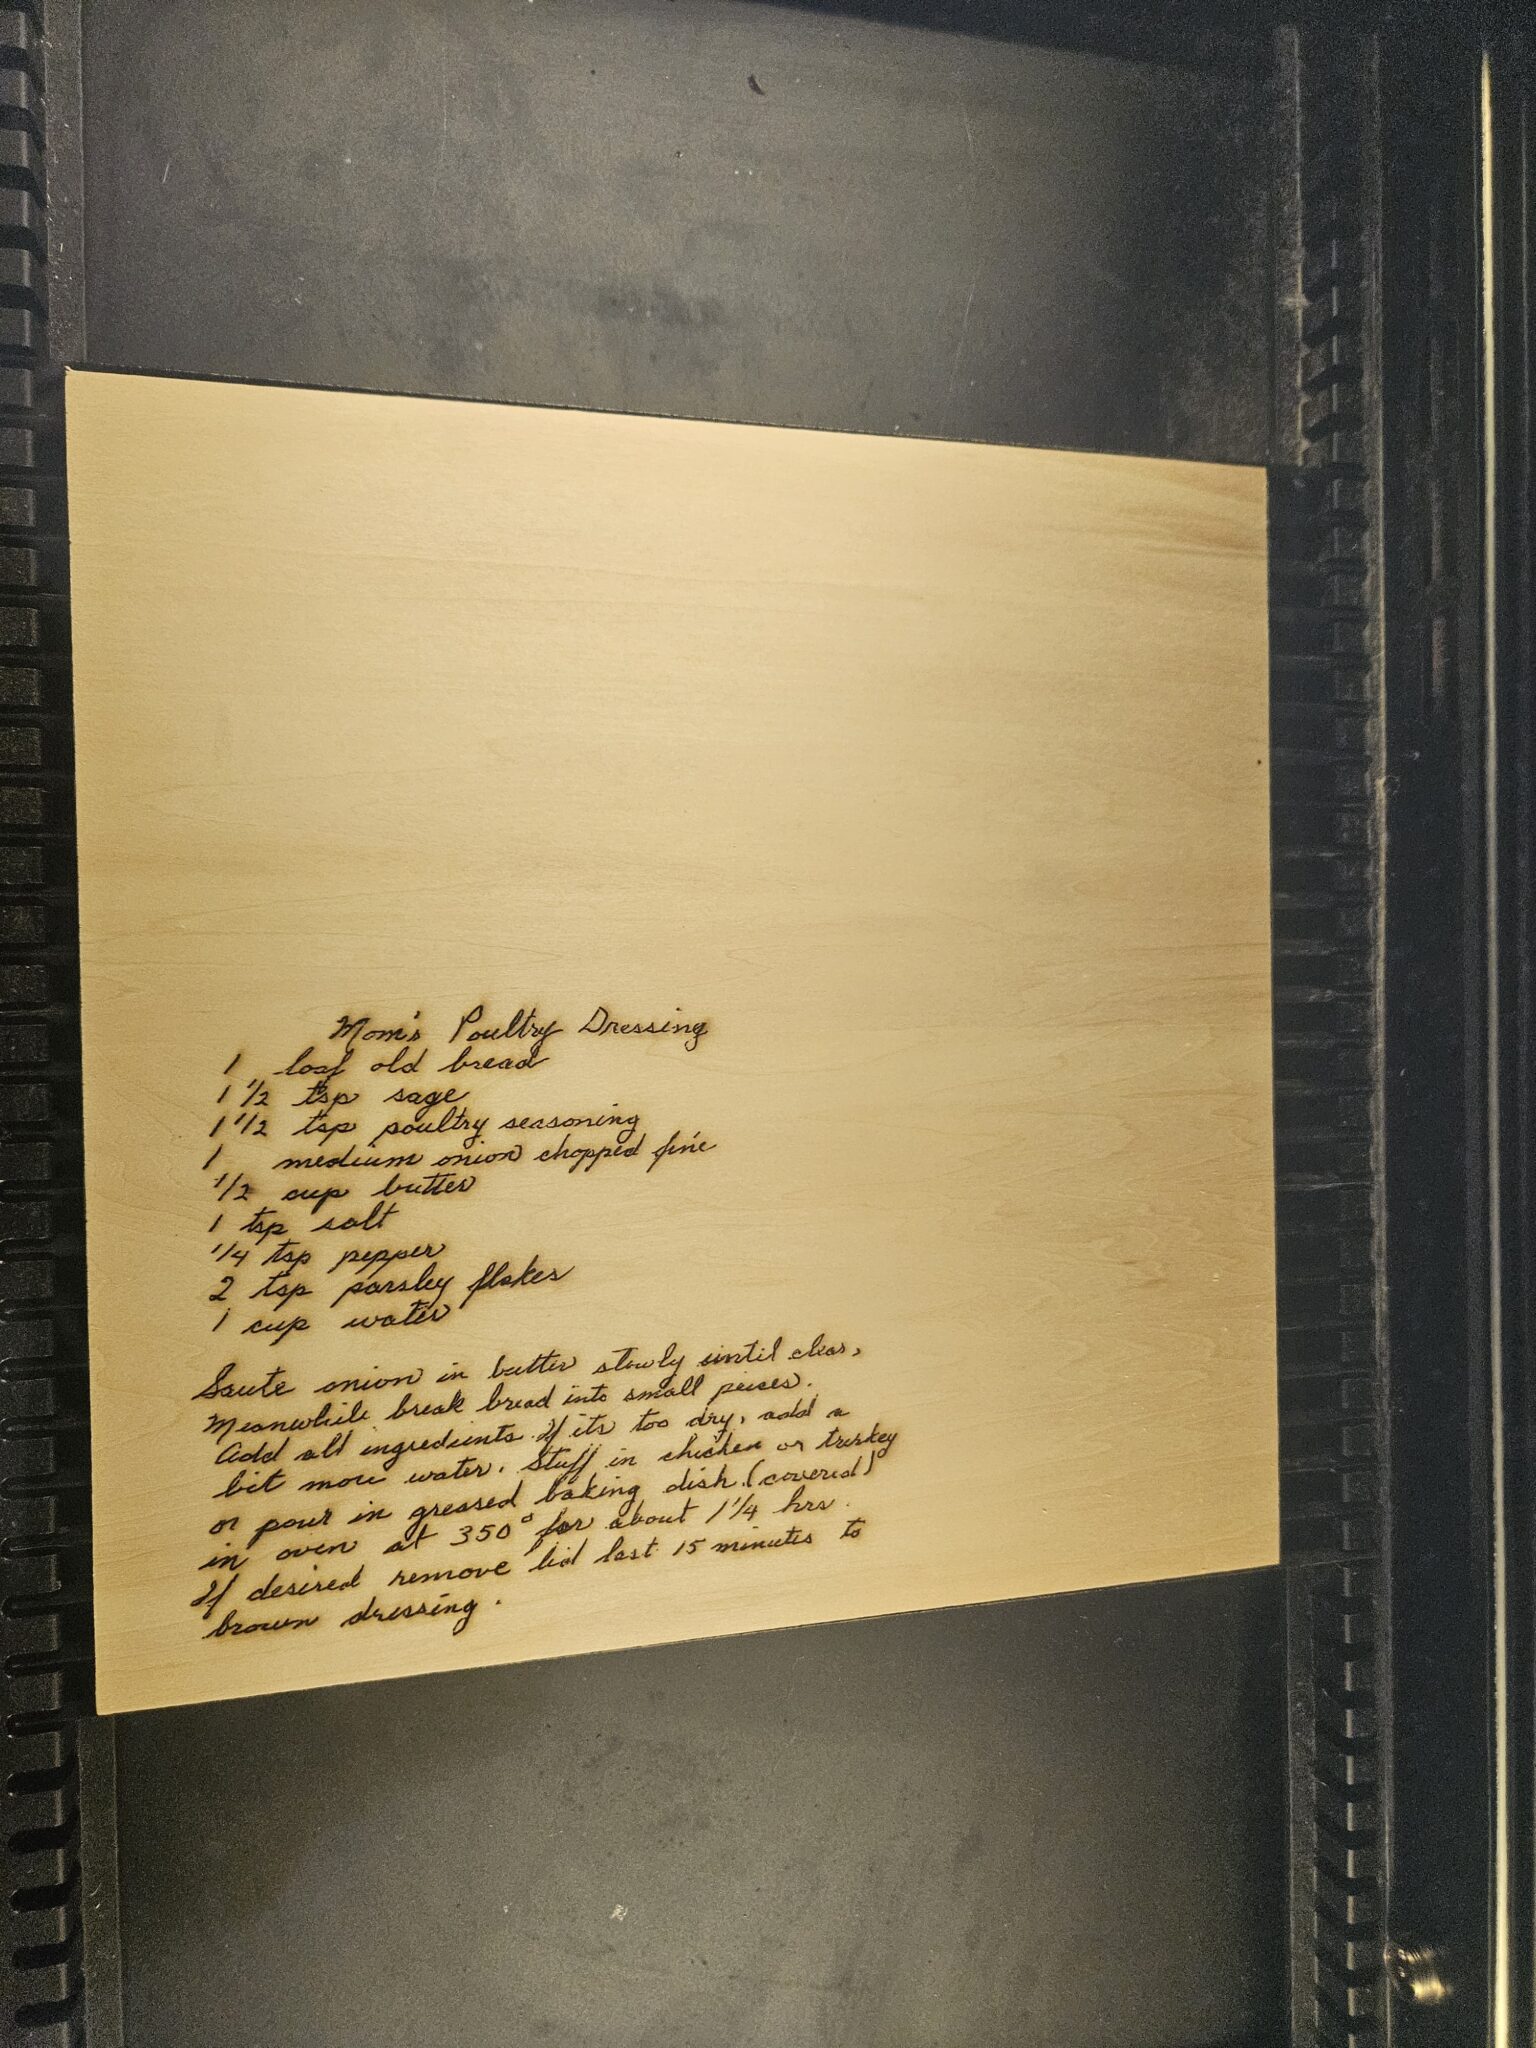 Mom's Poultry Dressing
1 loaf old bread
1 1/2 tsp sage
1 1/2 tsp poultry seasoning
1 medium onion chopped fine
1/2 cup butter
1 tsp salt
1/4 tsp pepper
2 tsp parsley flakes
1 cup water
Saute onion in butter slowly until clear,
Meanwhile break bread into small peices.
Add all ingredients. If its too dry, add a
bit more water. Stuff in chicken or turkey
or pour in greased baking dish (covered)
in oven at 350° for about 1 1/4 hrs.
If desired remove lid last 15 minutes to
brown dressing.